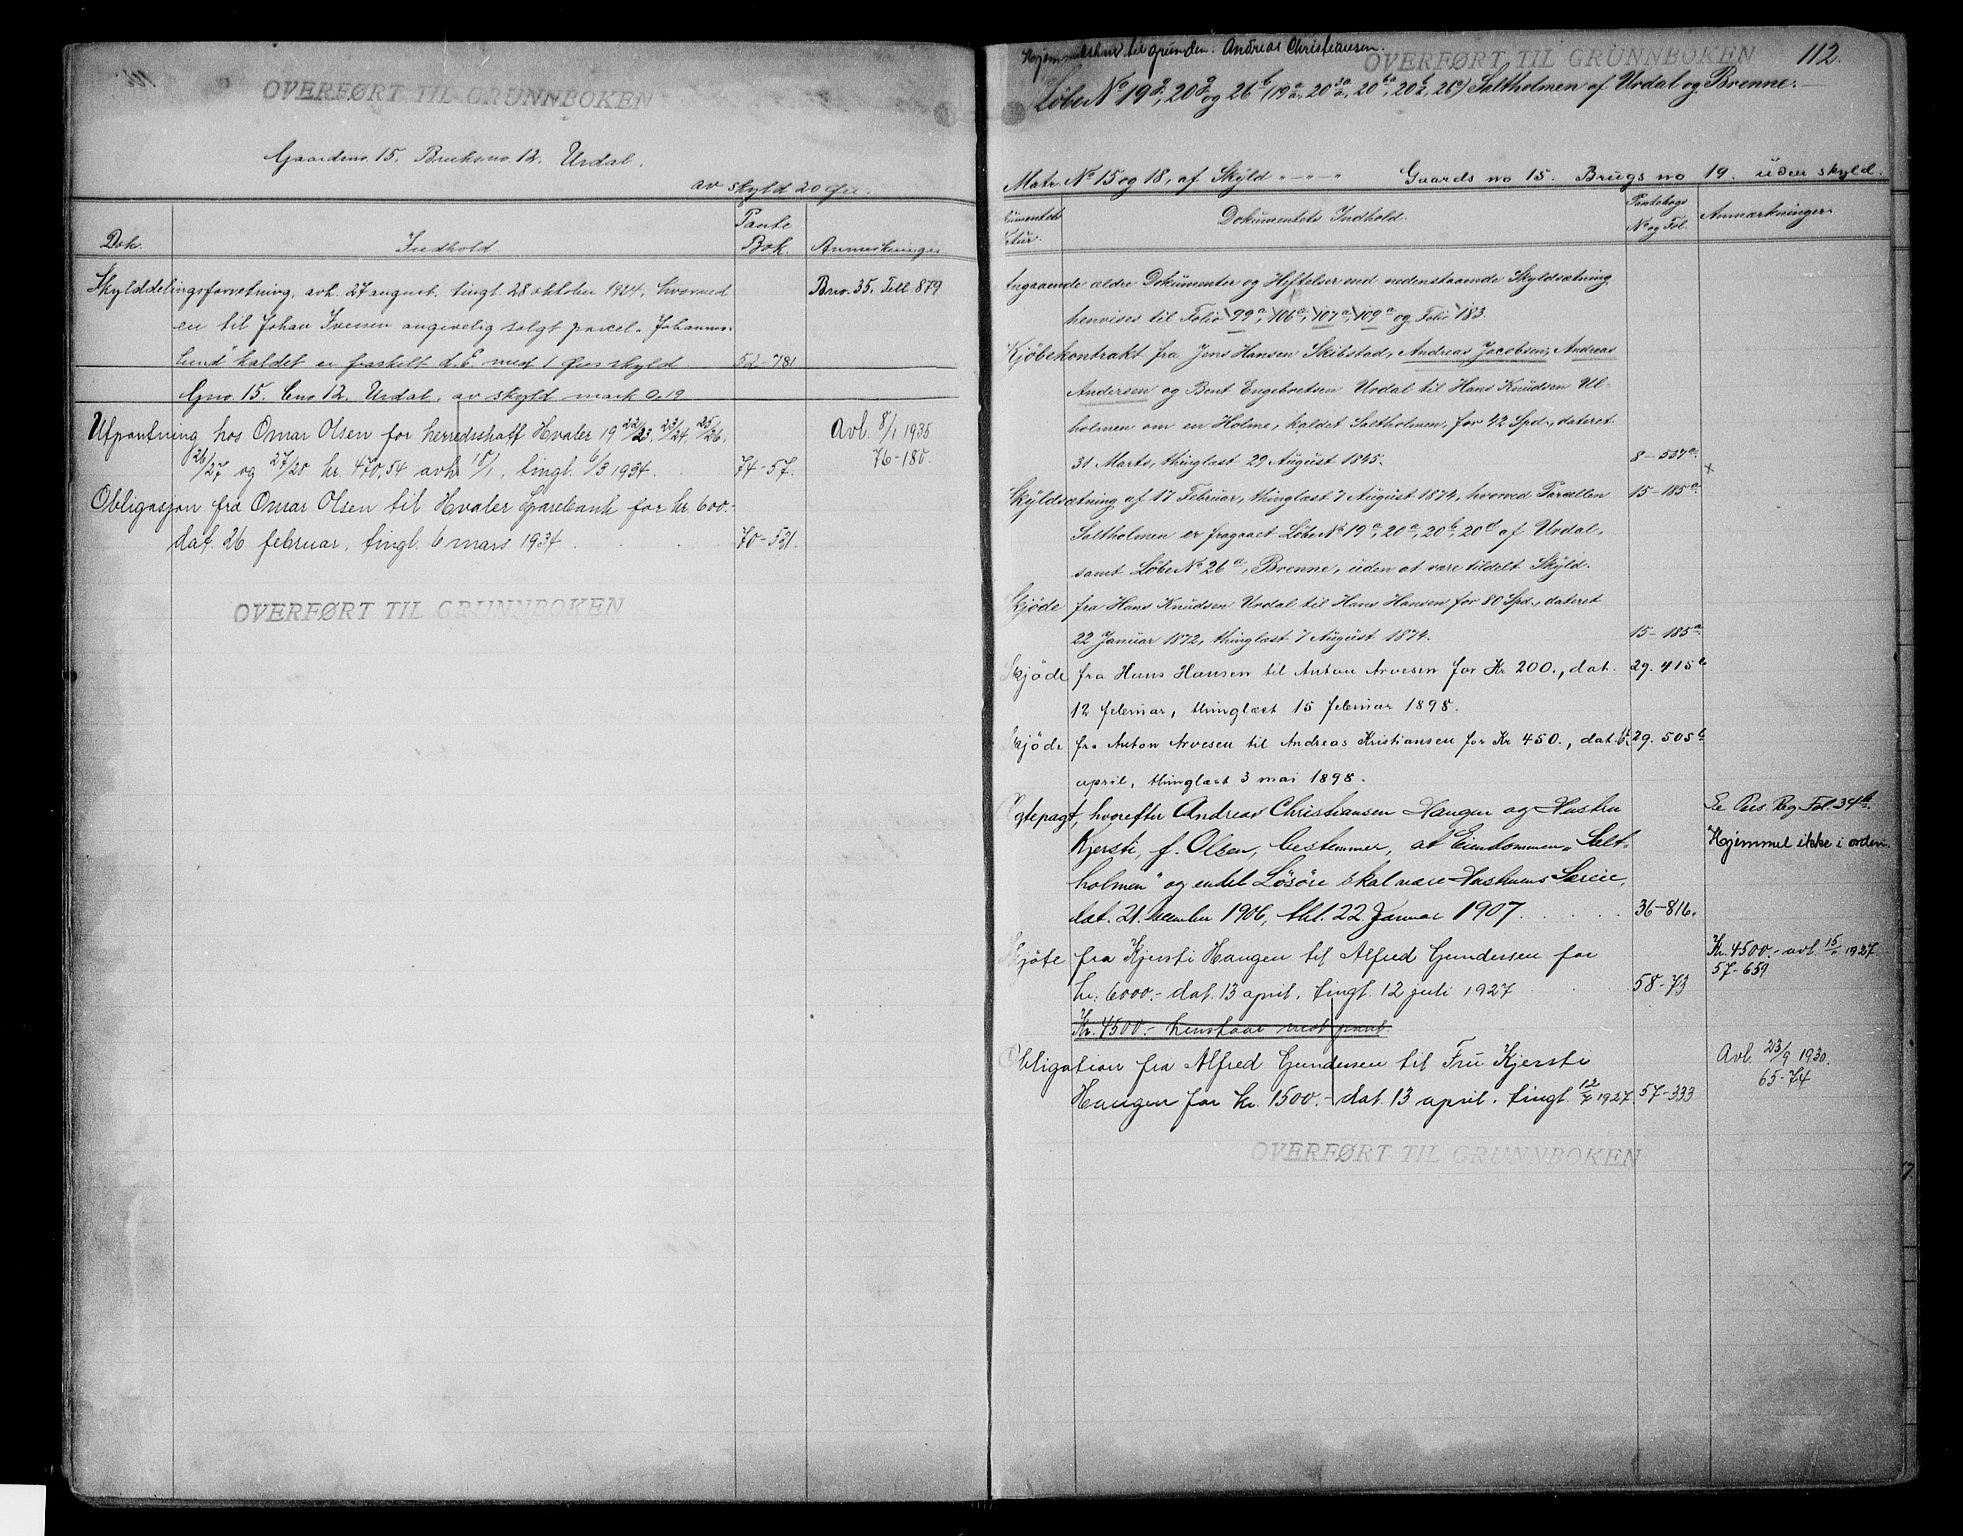 OVERFØRT TIL GRUNNBOKEN
Gaardsno. 15. Bruksno. 12. Urdal.
av skyld 20 Øre.
Dok. Indhold Pante Bok. Anmerkninger
Skylddelingsforretning, avh. 27 august, tingl. 28 oktober 1924, hvorved Brno. 35. Fell 879
en til Johan Iversen angivelig solgt parcel „Johannes-
lund" kaldet er fraskilt d.E. med 1 Øres skyld 52-781
Gno. 15. bno 12, Urdal, av skyld mark 0.19
Utpantning hos Omar Olsen for herredsskatt Hvaler 19 22/23, 23/24, 25/26, Avl. 8/1 1935
26/27 og 27/28 kr. 470,54 avh. 18/1, tingl. 6/3 1934. 74-57. 76-180.
Obligasjon fra Omar Olsen til Hvaler Sparebank for kr. 600.-
dat. 26 februar, tingl. 6 mars 1934 70-531.
OVERFØRT TIL GRUNNBOKEN
Hjemmelshaver til grunden: Andreas Christiansen.
OVERFØRT TIL GRUNNBOKEN 112.
Løbe No 19 20 og 26 b (19 20 20 20 26 a) Saltholmen af Urdal og Brenne.
Matr. No 15 og 18, af Skyld „ — „ — „ Gaards no 15. Brugs no 19. uden skyld.
Dokumentets Indhold. Pantebogs No og Fol. Anmærkninger.
Angaaende ældre Dokumenter og Heftelser end nedenstaaende Skyldsætning
henvises til Folio 99 a, 106 a, 107 a, 109 a og Folio 183.
Kjøbekontrakt fra Jens Hansen Skibstad, Andreas Jacobsen, Andreas
Andersen og Bent Engebretsen Urdal til Hans Knudsen Ul-
holmen om en Holme, kaldet Saltholmen, for 42 Spd., dateret
31 Marts, thinglæst 29 August 1845. 8-537 a.
Skyldsætning af 17 Februar, thinglæst 7 August 1874, hvorved Parcellen 15-185 a. x
Saltholmen er fragaaet Løbe No 19 a, 20 a, 20 b, 20 d af Urdal,
samt Løbe No 26 a, Brenne, uden at være tildelt Skyld.
Skjøde fra Hans Knudsen Urdal til Hans Hansen for 80 Spd., dateret
22 Januar 1872, thinglæst 7 August 1874. 15-185 a.
Skjøde fra Hans Hansen til Anton Arvesen for Kr 200., dat. 29. 415 b
12 februar, thinglæst 15 februar 1898.
Skjøde fra Anton Arvesen til Andreas Kristiansen for Kr 450., dat. 29. 505 b
april, thinglæst 3 mai 1898.
Ægtepagt, hvorefter Andreas Christiansen Haugen og Hustru Se Pers. Reg. Fol. 34 b.
Kjersti, f. Olsen, bestemmer, at Eiendommen „Salt- Hjemmel ikke i orden.
holmen" og endel Løsøre skal være Hustruens Særeie,
dat. 21. December 1906, thl. 22. Januar 1907. 36-816.
Skjøte fra Kjersti Haugen til Alfred Gundersen for Kr. 4500.- avl. 1927
kr. 6000.- dat. 13 april, tingl. 12 juli 1927 58-73 57-659
Kr. 4500.- henstaar mot pant.
Obligation fra Alfred Gundersen til Fru Kjersti Avl. 23/9 1930.
Haugen for kr. 1500.- dat. 13 april, tingl. 12/7 1927. 57-333 65-74
OVERFØRT TIL GRUNNBOKEN